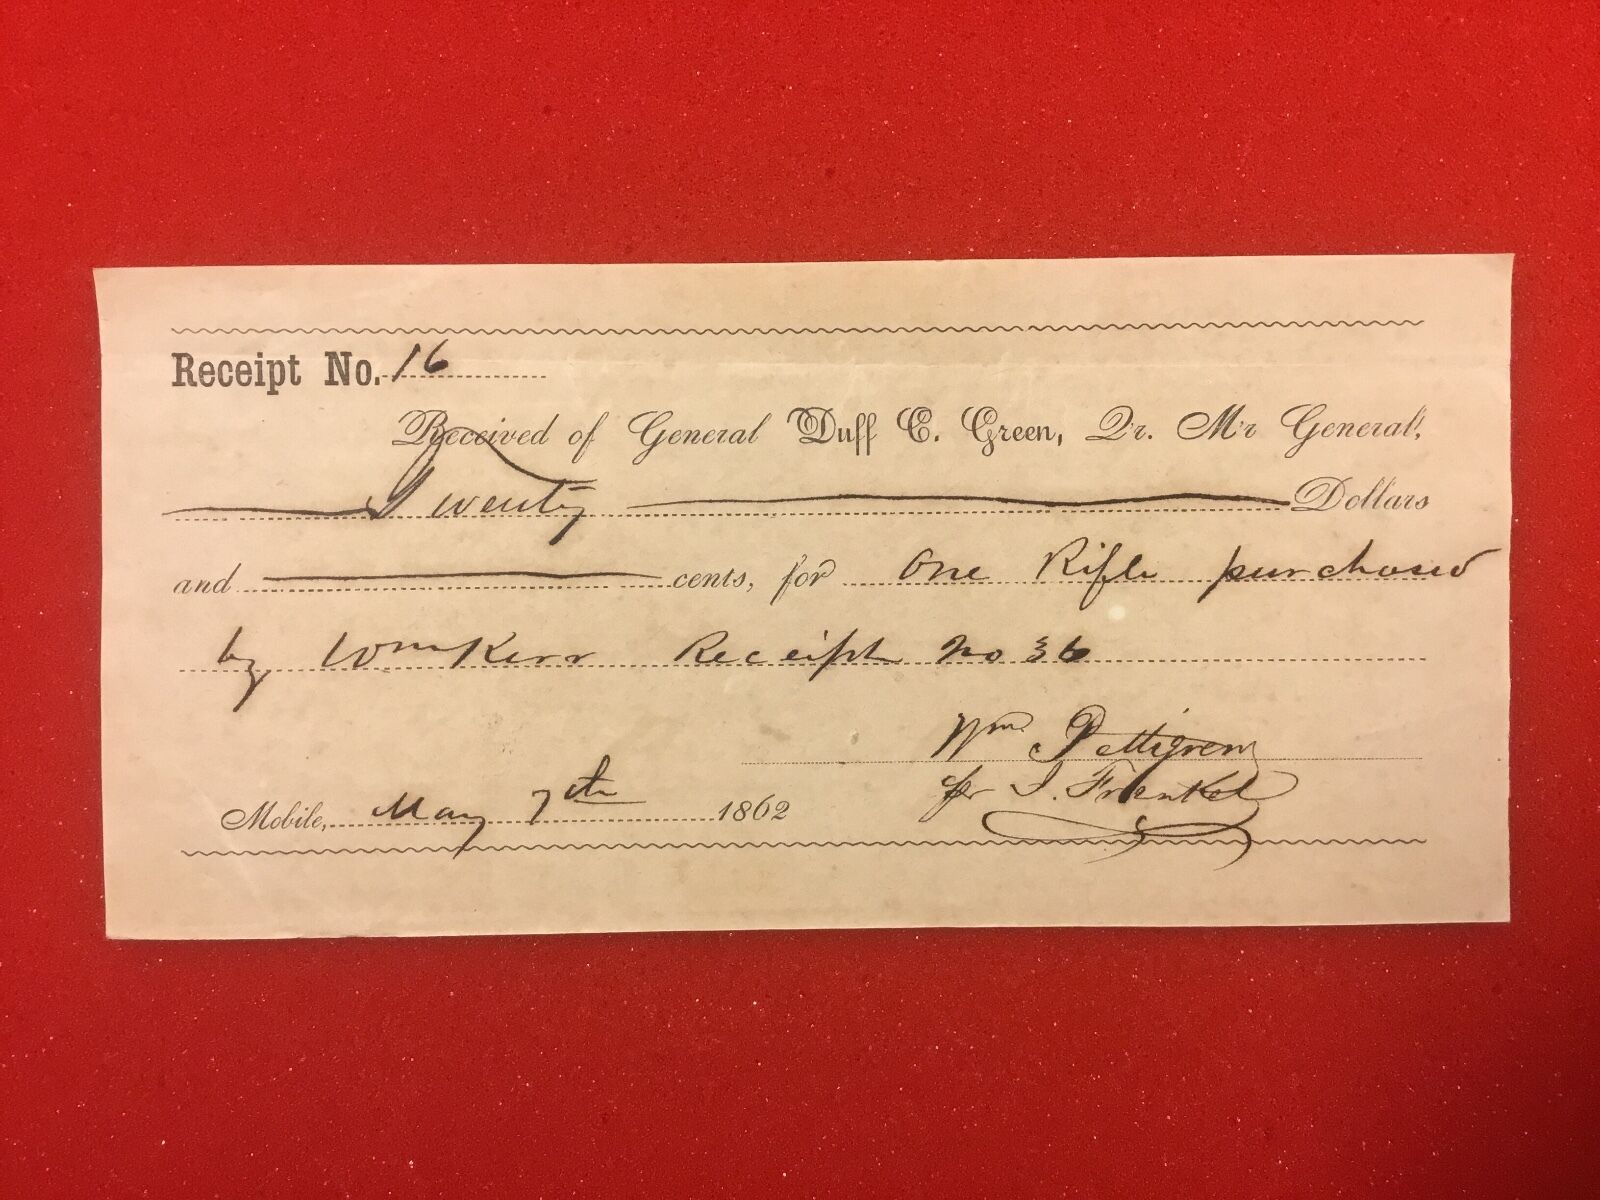 Receipt No. 16
Received of General Duff C. Green, Qr. Mr General,
Twenty Dollars
and cents, for One Rifle purchased
by Wm Kerr Receipt No 36
Wm Pettigrew
pr I. Frenkel
Mobile, May 7th 1862